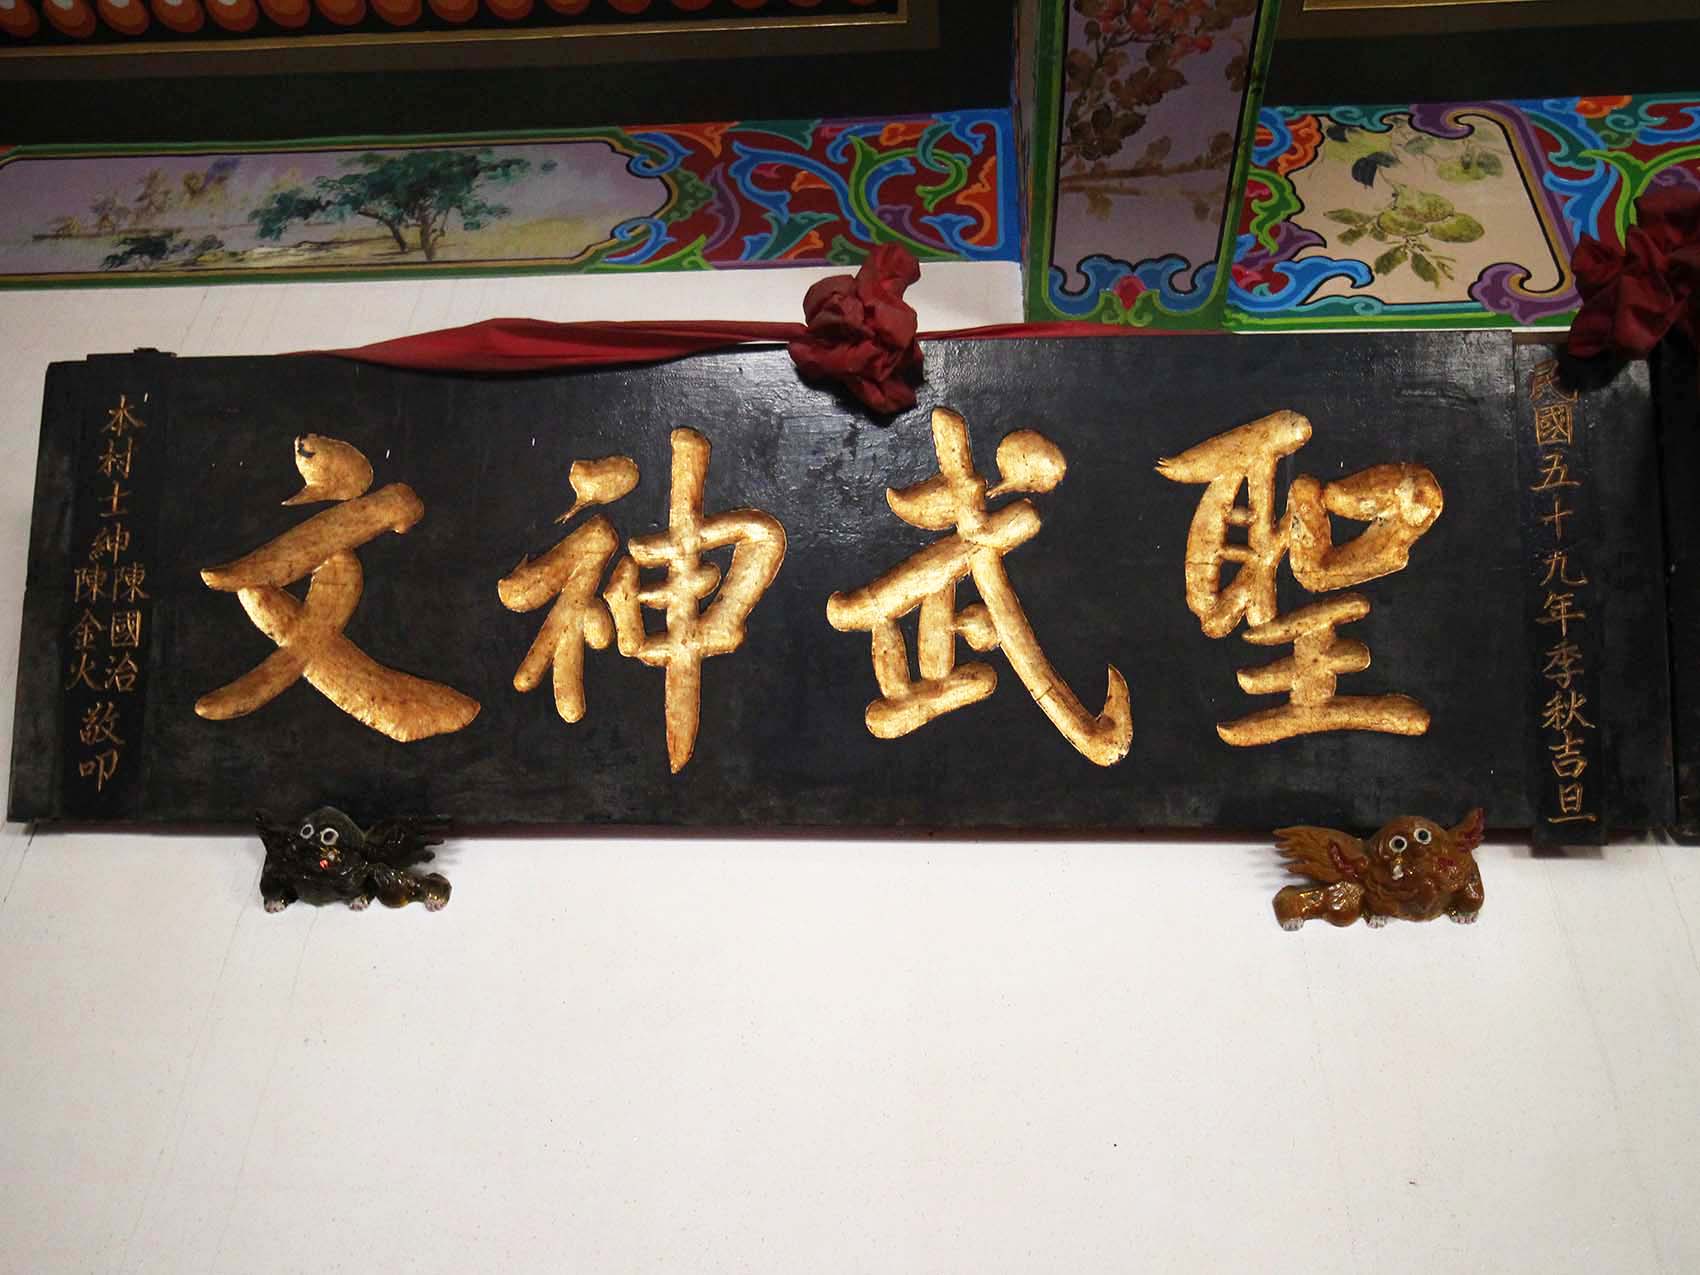 民國五十九年季秋吉旦
聖武神文
本村士紳
陳國治
陳金火
敬叩